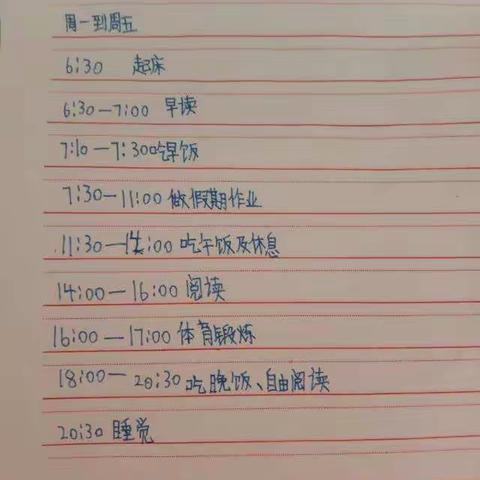 周一到周五
6:30 起床
6:30—7:00 早读
7:10—7:30吃早饭
7:30—11:00 做假期作业
11:30—14:00 吃午饭及休息
14:00—16:00 阅读
16:00—17:00 体育锻炼
18:00—20:30 吃晚饭、自由阅读
20:30 睡觉